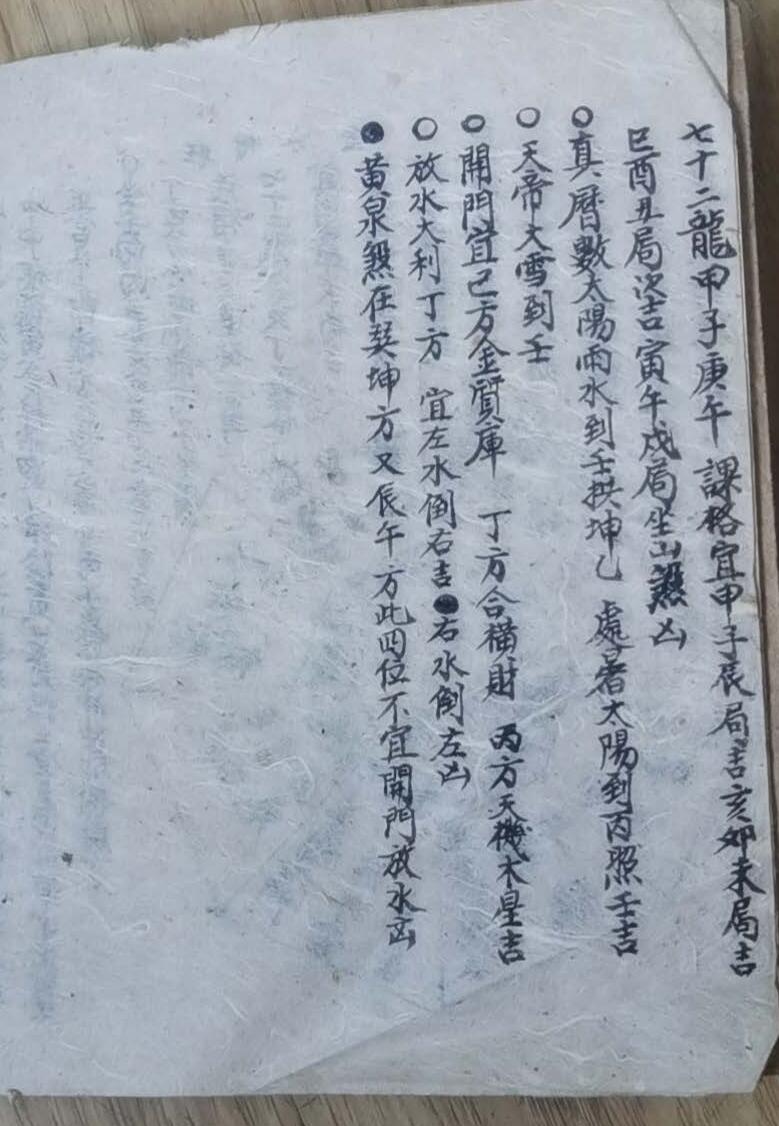 七十二龍甲子庚午　課格宜申子辰局吉亥卯未局吉
巳酉丑局次吉寅午戌局坐山煞凶
○真曆數太陽雨水到壬拱坤乙　處暑太陽到丙照壬吉
○天帝大雪到壬
○開門宜巳方金質庫　丁方合橫財　丙方天機木星吉
○放水大利丁方　宜左水倒右吉●右水倒左凶
●黃泉煞在巽坤方又辰午方此四位不宜開門放水凶